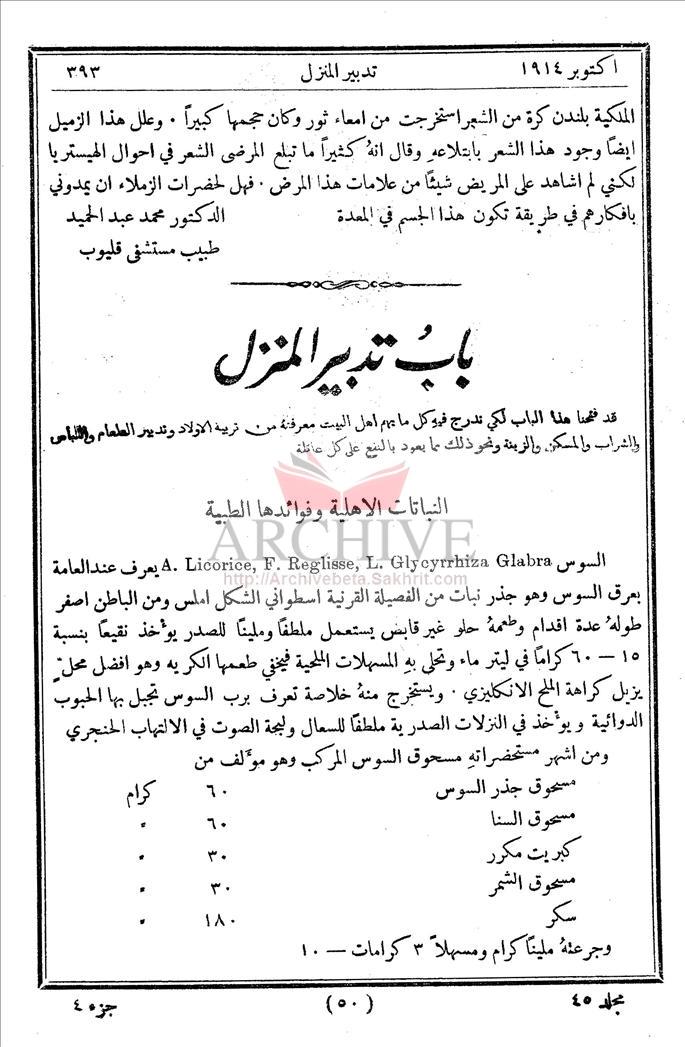 اكتوبر ١٩١٤ تدبير المنزل ٣٩٣
الملكية بلندن كرة من الشعر استخرجت من امعاء ثور وكان حجمها كبيراً ٠ وعلل هذا الزميل
ايضاً وجود هذا الشعر بابتلاعهِ وقال انهُ كثيراً ما تبلع المرضى الشعر في احوال الهيستريا
لكني لم اشاهد على المريض شيئاً من علامات هذا المرض ٠ فهل لحضرات الزملاء ان يمدوني
بافكارهم في طريقة تكون هذا الجسم في المعدة الدكتور محمد عبد الحميد
طبيب مستشفى قليوب
بابُ تدبير المنزل
قد فتحنا هذا الباب لكي ندرج فيهِ كل ما يهم اهل البيت معرفتهُ من تربية الاولاد وتدبير الطعام واللباس
والشراب والمسكن والزينة ونحو ذلك مما يعود بالنفع على كل عائلة
النباتات الاهلية وفوائدها الطبية
ARCHIVE
السوس A. Licorice, F. Reglisse, L. Glycyrrhiza Glabra يعرف عند العامة
http://Archivebeta.Sakhrit.com
بعرق السوس وهو جذر نبات من الفصيلة القرنية اسطواني الشكل املس ومن الباطن اصفر
طولهُ عدة اقدام وطعمهُ حلو غير قابض يستعمل ملطفاً ومليناً للصدر يؤخذ نقيعاً بنسبة
١٥ — ٦٠ كراماً في ليتر ماء وتحلى بهِ المسهلات الملحية فيخفي طعمها الكريه وهو افضل محلّ
يزيل كراهة الملح الانكليزي ٠ ويستخرج منهُ خلاصة تعرف برب السوس تجبل بها الحبوب
الدوائية ويؤخذ في النزلات الصدرية ملطفاً للسعال ولبحة الصوت في الالتهاب الحنجري
ومن اشهر مستحضراتهِ مسحوق السوس المركب وهو مؤلف من
مسحوق جذر السوس ٦٠ كرام
مسحوق السنا ٦٠ "
كبريت مكرر ٣٠ "
مسحوق الشمر ٣٠ "
سكر ١٨٠ "
وجرعتهُ مليناً كرام ومسهلاً ٣ كرامات — ١٠
مجلد ٤٥ (٥٠) جزء ٤